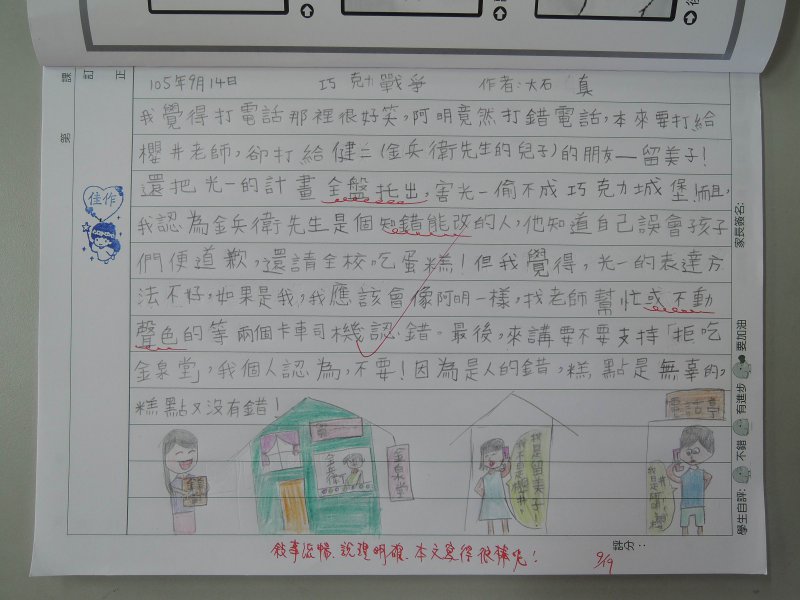 105年9月14日 巧克力戰爭 作者:大石 真
我覺得打電話那裡很好笑,阿明竟然打錯電話,本來要打給
櫻井老師,卻打給健二(金兵衛先生的兒子)的朋友—留美子!
還把光一的計畫全盤托出,害光一偷不成巧克力城堡。但,
我認為金兵衛先生是個知錯能改的人,他知道自己誤會孩子
們便道歉,還請全校吃蛋糕!但我覺得,光一的表達方
法不好,如果是我,我應該會像阿明一樣,找老師幫忙或不動
聲色的等兩個卡車司機認錯。最後,來講要不要支持「拒吃
金泉堂」,我個人認為,不要!因為是人的錯,糕點是無辜的,
糕點又沒有錯!
電話亭
金泉堂
我是留美子!
敘事流暢、說理明確,本文寫得很棒呢!
9/19
佳作
第 課 訂正
家長簽名:
學生自評: 不錯 有進步 要加油